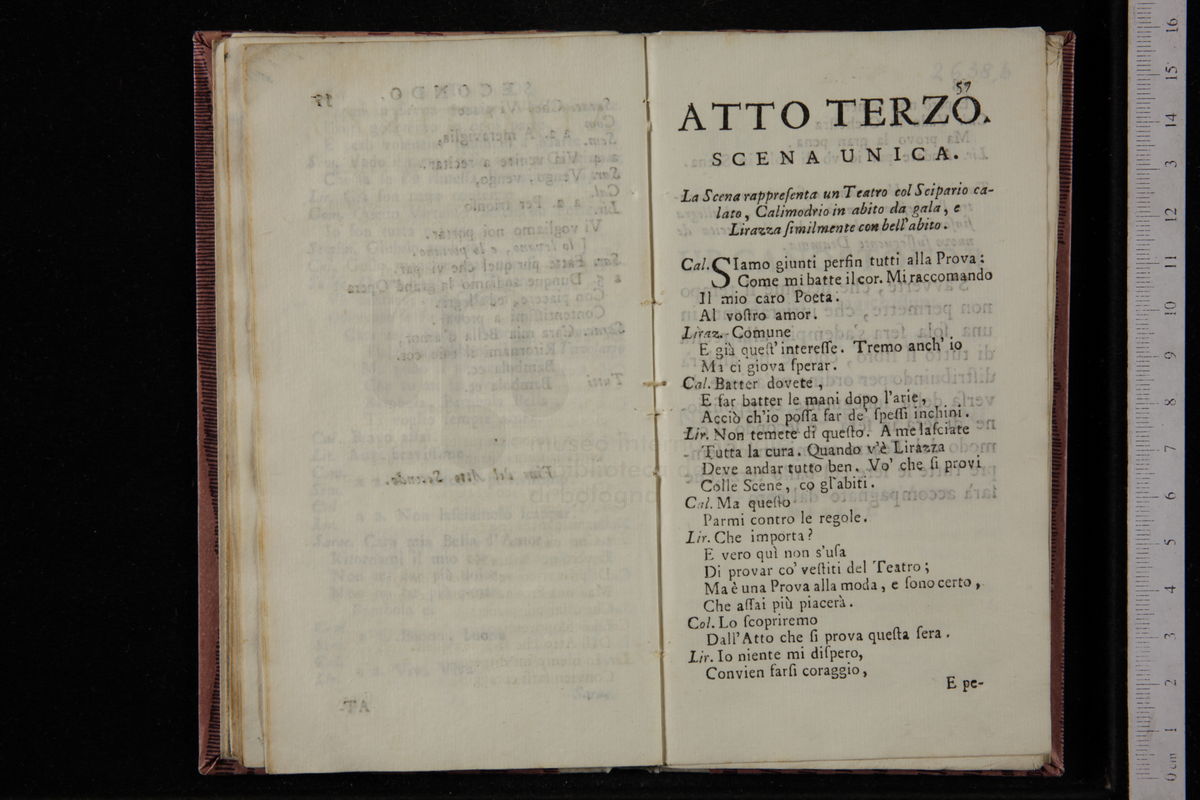 2638,b
57
ATTO TERZO.
SCENA UNICA.
La Scena rappreſenta un Teatro col Scipario ca-
lato, Calimodrio in abito da gala, e
Lirazza ſimilmente con bell'abito.
Cal. SIamo giunti perfin tutti alla Prova:
Come mi batte il cor. Mi raccomando
Il mio caro Poeta.
Al voſtro amor.
Liraz. Comune
E già queſt' intereſſe. Tremo anch' io
Ma ci giova ſperar.
Cal. Batter dovete,
E far batter le mani dopo l'arie,
Acciò ch'io poſſa far de' ſpeſſi inchini.
Lir. Non temete di queſto. A me laſciate
Tutta la cura. Quando v'è Lirazza
Deve andar tutto ben. Vo' che ſi provi
Colle Scene, co gl'abiti.
Cal. Ma queſto
Parmi contro le regole.
Lir. Che importa?
E vero quì non s'uſa
Di provar co' veſtiti del Teatro;
Ma è una Prova alla moda, e ſono certo,
Che aſſai più piacerà.
Col. Lo ſcopriremo
Dall'Atto che ſi prova queſta ſera.
Lir. Io niente mi diſpero,
Convien farſi coraggio,
E pe-
museo inter
biblioteca
di bologna
0 cm 1 2 3 4 5 6 7 8 9 10 11 12 13 14 15 16